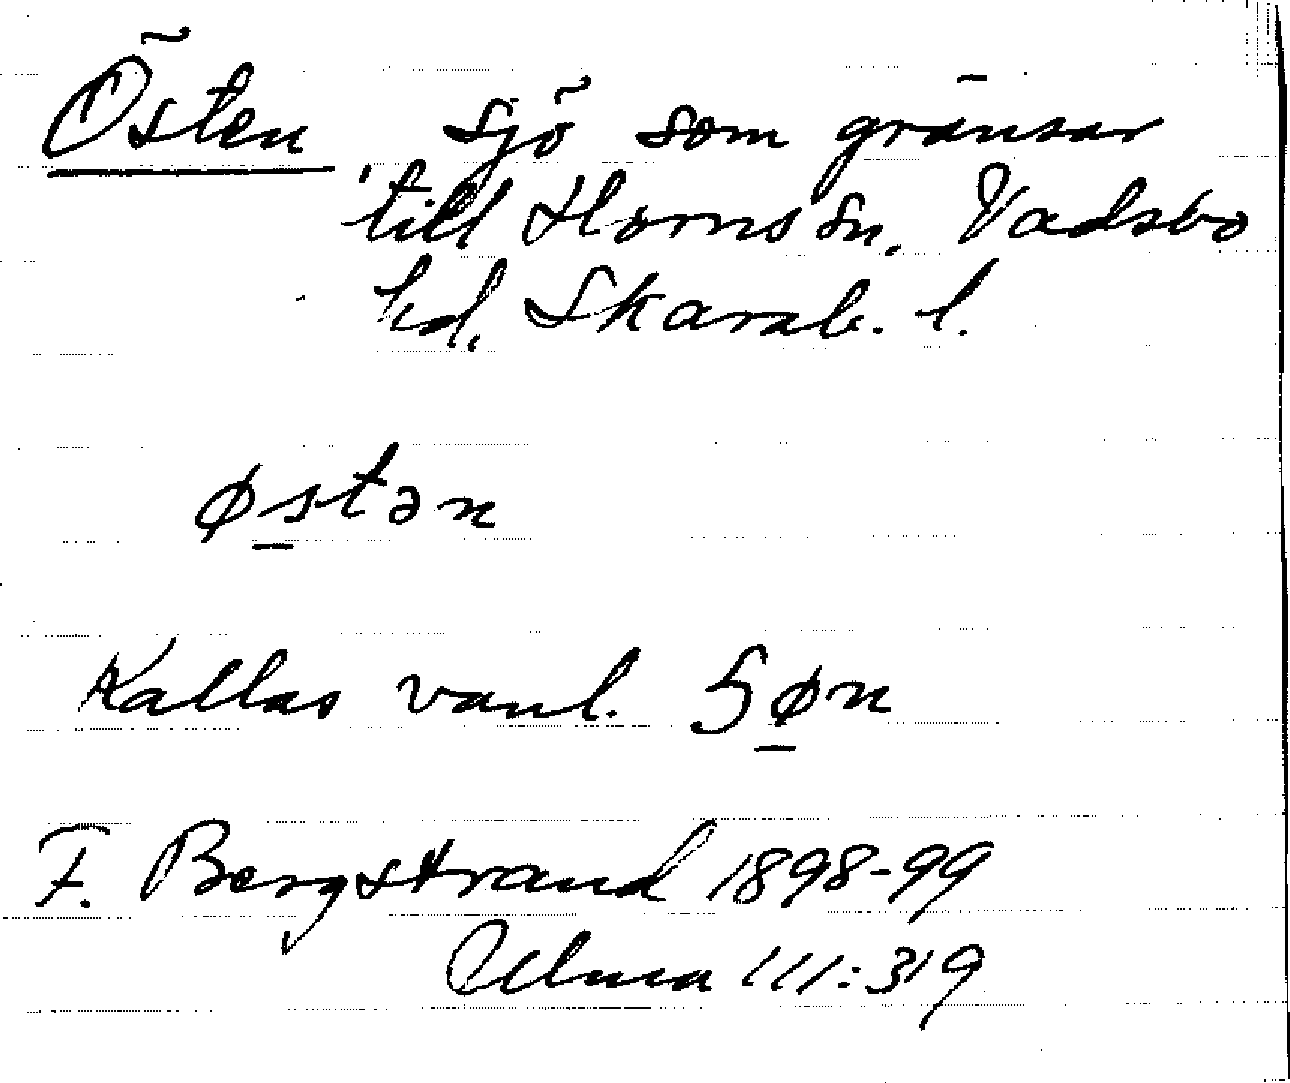 Östen sjö som gränsar
till Horns sn, Vadsbo
hd, Skarab. l.
østən
Kallas vanl. Sjøn
F. Bergstrand 1898-99
Ulma 111:319